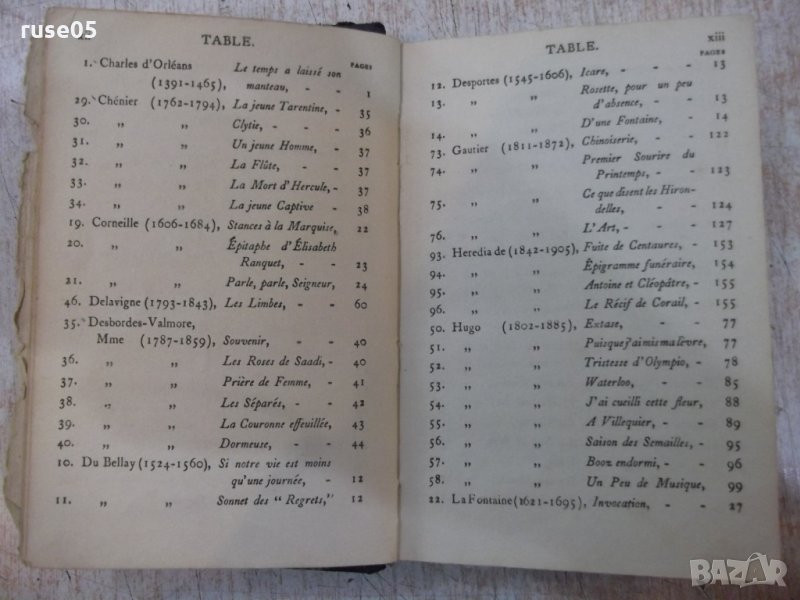 ruse05
TABLE.
PAGES
1. Charles d'Orléans Le temps a laissé son
(1391-1465), manteau, - - 1
29. Chénier (1762-1794), La jeune Tarentine, - 35
30. „ „ Clytie, - - 36
31. „ „ Un jeune Homme, - 37
32. „ „ La Flûte, - - 37
33. „ „ La Mort d'Hercule, - 37
34. „ „ La jeune Captive - 38
19. Corneille (1606-1684), Stances à la Marquise, 22
20. „ „ Épitaphe d'Élisabeth
Ranquet, - - 23
21. „ „ Parle, parle, Seigneur, 24
46. Delavigne (1793-1843), Les Limbes, - - 60
35. Desbordes-Valmore,
Mme (1787-1859), Souvenir, - - 40
36. „ „ Les Roses de Saadi, - 40
37. „ „ Prière de Femme, - 41
38. „ „ Les Séparés, - - 42
39. „ „ La Couronne effeuillée, 43
40. „ „ Dormeuse, - - 44
10. Du Bellay (1524-1560), Si notre vie est moins
qu'une journée, - 12
11. „ „ Sonnet des "Regrets," 12
TABLE.
xiii
PAGES
12. Desportes (1545-1606), Icare, - - - 13
13. „ „ Rosette, pour un peu
d'absence, - - 13
14. „ „ D'une Fontaine, - 14
73. Gautier (1811-1872), Chinoiserie, - - 122
74. „ „ Premier Sourire du
Printemps, - - 123
75. „ „ Ce que disent les Hiron-
delles, - - 124
76. „ „ L'Art, - - 127
93. Heredia de (1842-1905), Fuite de Centaures, - 153
94. „ „ Épigramme funéraire, 154
95. „ „ Antoine et Cléopâtre, - 155
96. „ „ Le Récif de Corail, - 155
50. Hugo (1802-1885), Extase, - - 77
51. „ „ Puisque j'ai mis ma lèvre, 77
52. „ „ Tristesse d'Olympio, - 78
53. „ „ Waterloo, - - 85
54. „ „ J'ai cueilli cette fleur, 88
55. „ „ A Villequier, - - 89
56. „ „ Saison des Semailles, - 95
57. „ „ Booz endormi, - - 96
58. „ „ Un Peu de Musique, 99
22. La Fontaine (1621-1695), Invocation, - - 27
BAZAR
.bg